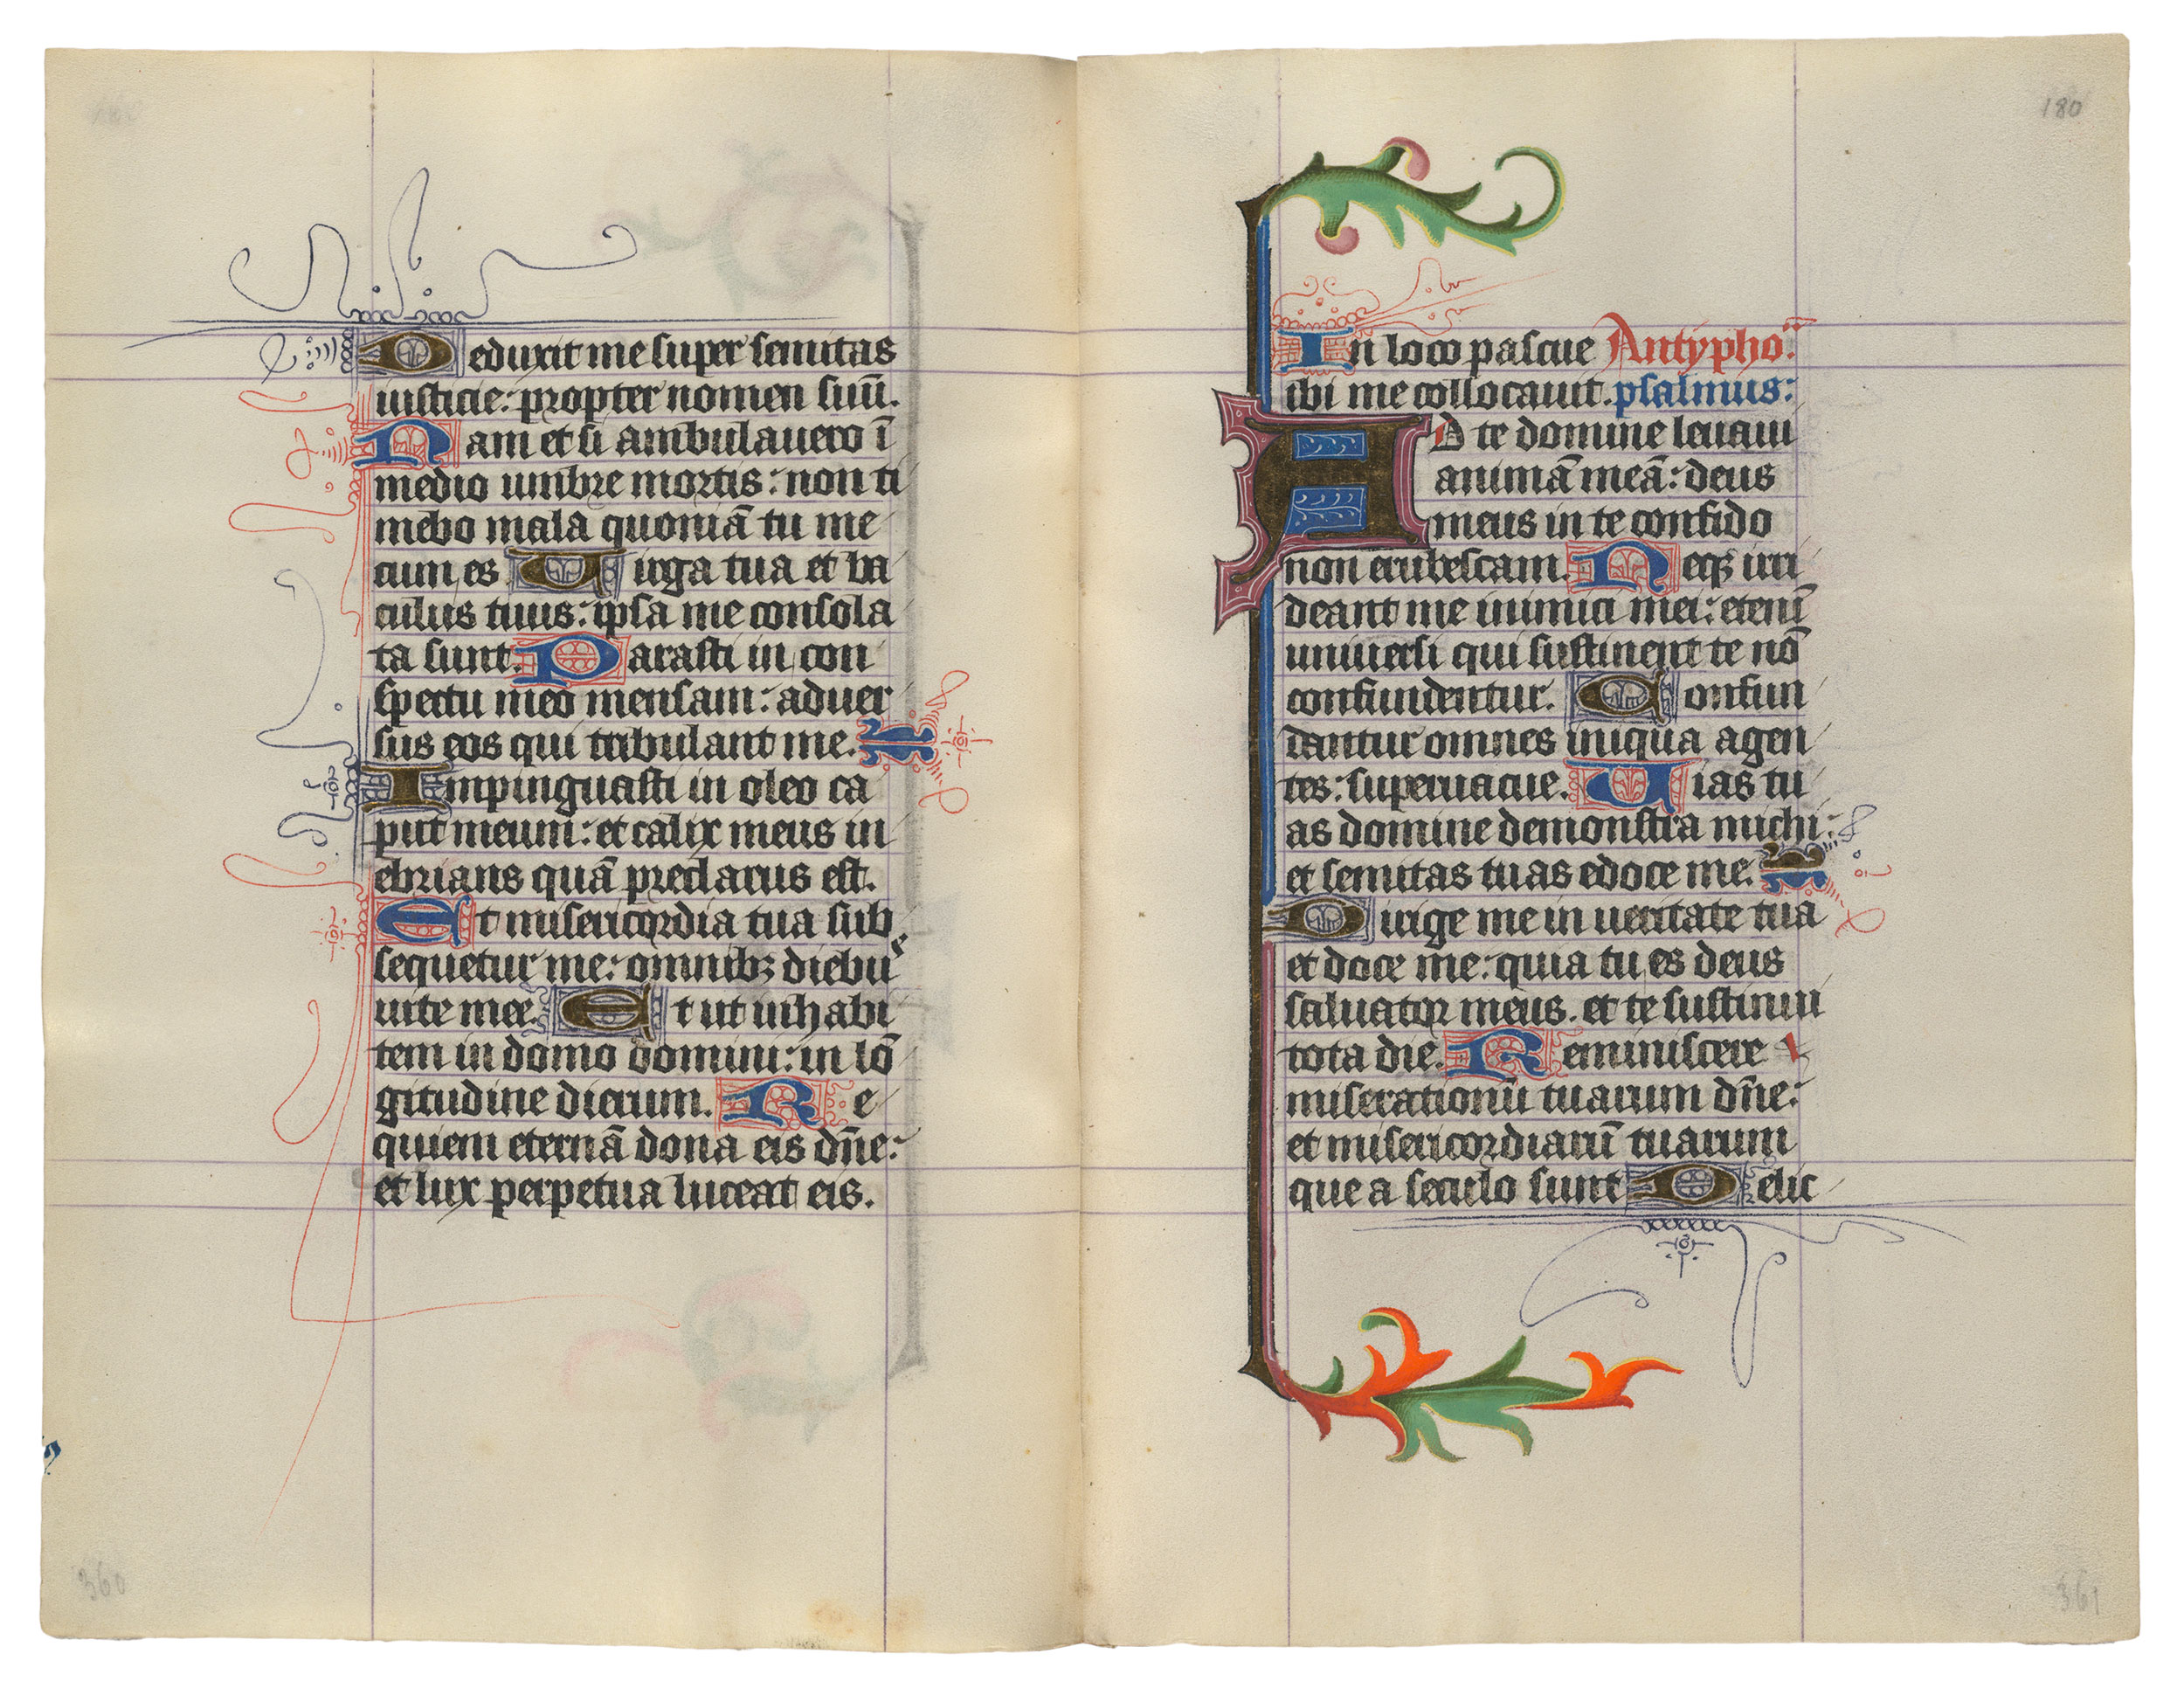 Deduxit me super semitas
iusticie: propter nomen suū.
Nam et si ambulavero ī
medio umbre mortis: non ti
mebo mala quoniā tu me
cum es Virga tua et ba
culus tuus: ipsa me consola
ta sunt. Parasti in con
spectu meo mensam: aduer
sus eos qui tribulant me.
Impinguasti in oleo ca
put meum: et calix meus in
ebrians quā preclarus est.
Et misericordia tua sub
sequetur me: omnibꝫ diebus
uite mee. Et ut inhabi
tem in domo domini: in lō
gitudine dierum. Re
quiem eternā dona eis dn̄e:
et lux perpetua luceat eis.
360
180
In loco pascue Antypho:
ibi me collocauit. psalmus:
AD te domine leuaui
animā meā: deus
meus in te confido
non erubescam. Neqꝫ irri
deant me inimici mei: etenī
uniuersi qui sustinent te nō
confundentur. Confun
dantur omnes iniqua agen
tes: superuacue. Vias tu
as domine demonstra michi:
et semitas tuas edoce me.
Dirige me in ueritate tua
et doce me: quia tu es deus
saluator meus. et te sustinui
tota die. Reminiscere
miserationū tuarum dn̄e:
et misericordiarū tuarum
que a seculo sunt Delic
361